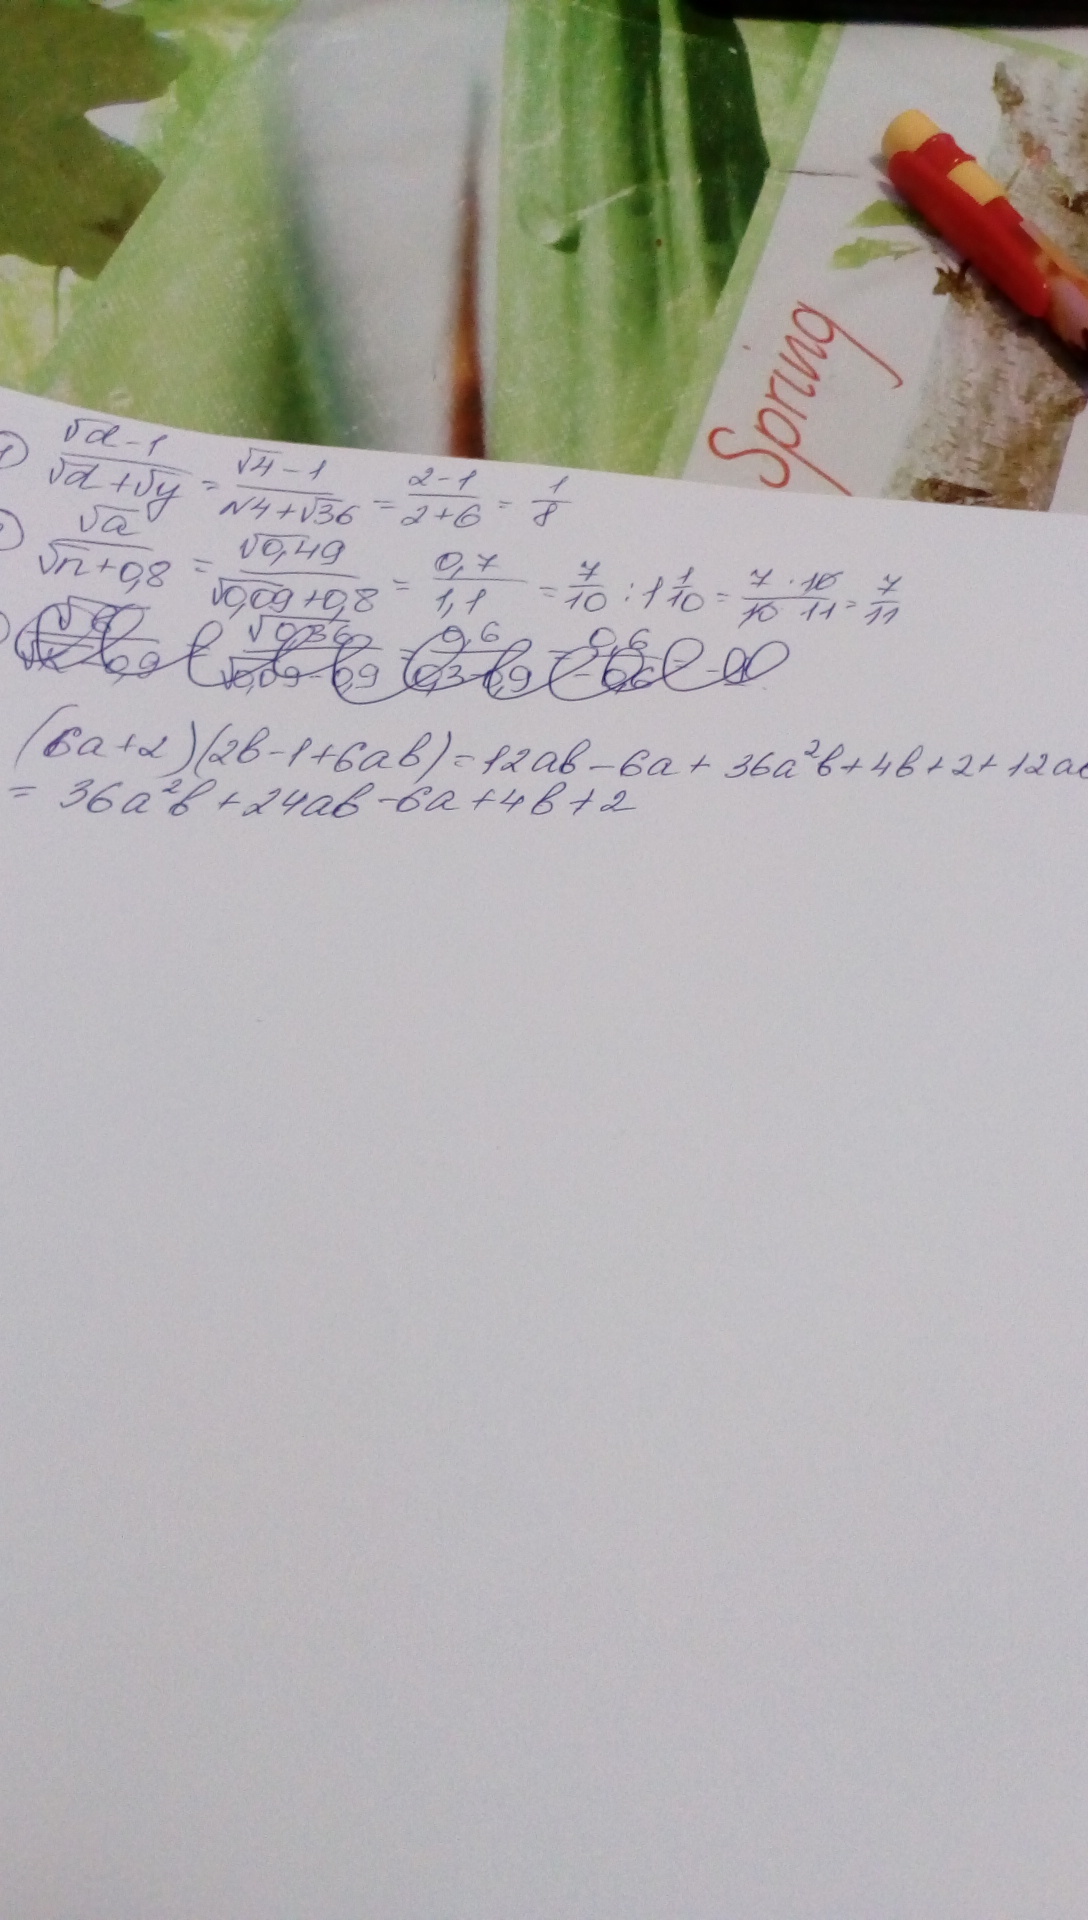 Spring
1) (√d-1)/(√d+√y) = (√4-1)/(√4+√36) = (2-1)/(2+6) = 1/8
√a/(√n+0,8) = √0,49/(√0,09+0,8) = 0,7/1,1 = 7/10 : 1 1/10 = (7·10)/(10·11) = 7/11
√0,36/(√0,09-0,9) = 0,6/(0,3-0,9) = 0,6/-0,6 =
(6a+2)(2b-1+6ab) = 12ab-6a+36a²b+4b+2+12ab
= 36a²b+24ab-6a+4b+2